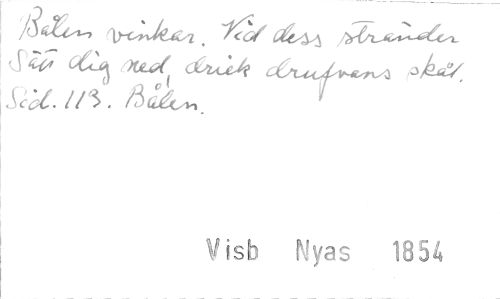 Bålen vinkar. Vid dess stränder
Sätt dig ned, drick drufvans skål.
Sid. 113. Bålen.
Visb Nyas 1854